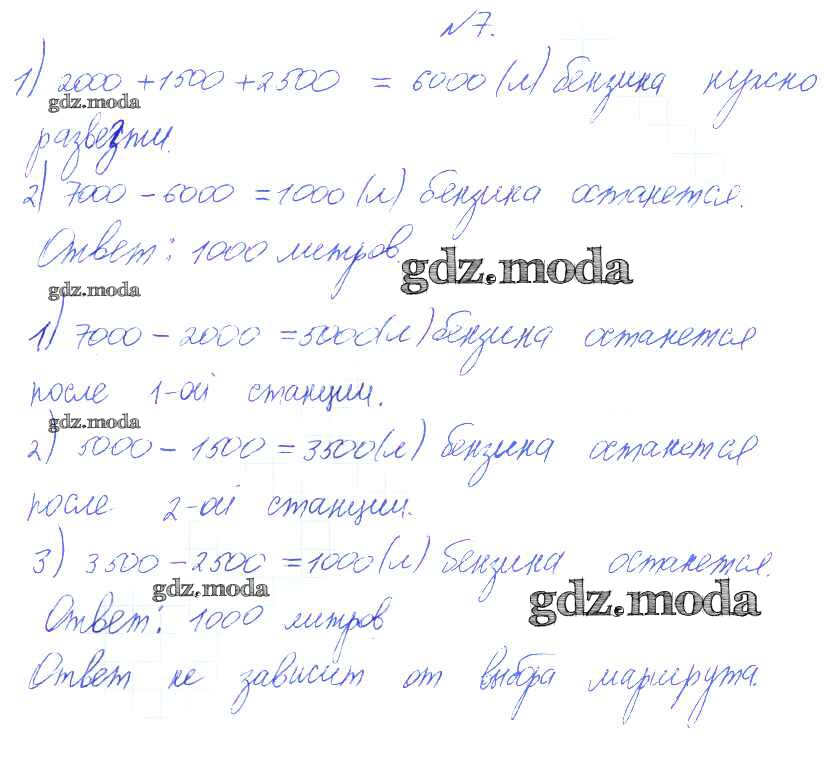 №7.
1) 2000 + 1500 + 2500 = 6000 (л) бензина нужно
gdz.moda
развезти.
2) 7000 - 6000 = 1000 (л) бензина останется.
Ответ: 1000 литров.
gdz.moda
gdz.moda
1) 7000 - 2000 = 5000 (л) бензина останется
после 1-ой станции.
gdz.moda
2) 5000 - 1500 = 3500 (л) бензина останется
после 2-ой станции.
3) 3500 - 2500 = 1000 (л) бензина останется.
gdz.moda
gdz.moda
Ответ: 1000 литров
Ответ не зависит от выбра маршрута.